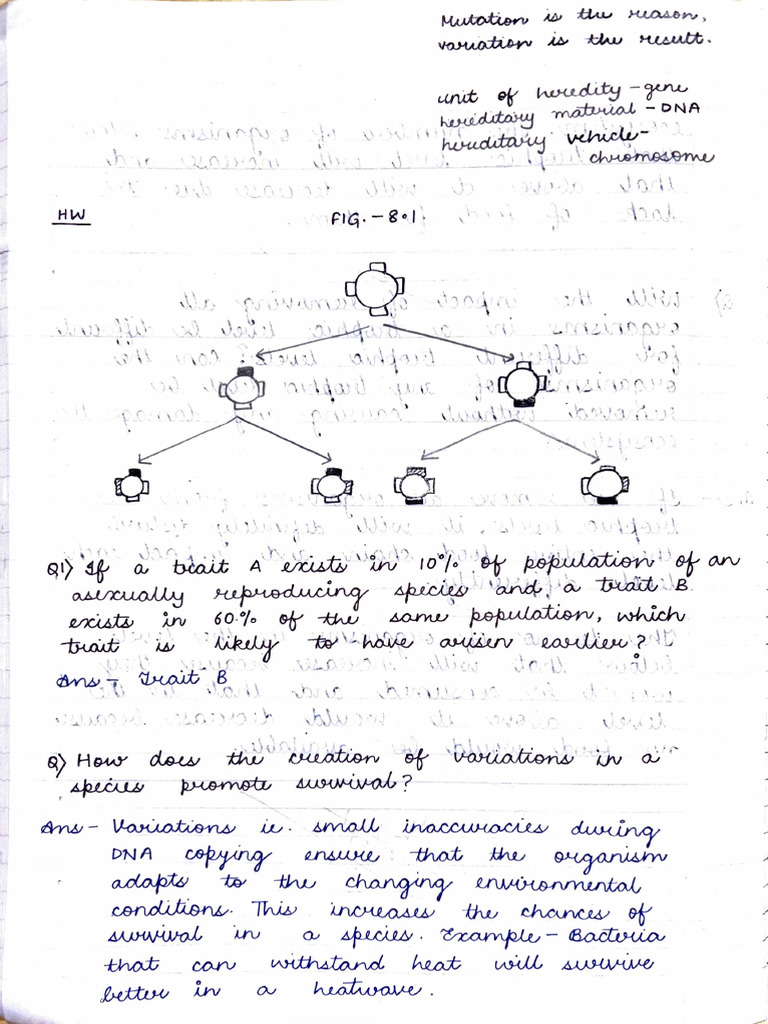 Mutation is the reason,
variation is the result.
unit of heredity - gene
hereditary material - DNA
hereditary vehicle -
chromosome
HW
FIG. - 8.1
Q1) If a trait A exists in 10% of population of an
asexually reproducing species and a trait B
exists in 60% of the same population, which
trait is likely to have arisen earlier?
Ans - Trait B
Q) How does the creation of variations in a
species promote survival?
Ans - Variations ie. small inaccuracies during
DNA copying ensure that the organism
adapts to the changing environmental
conditions. This increases the chances of
survival in a species. Example - Bacteria
that can withstand heat will survive
better in a heatwave.